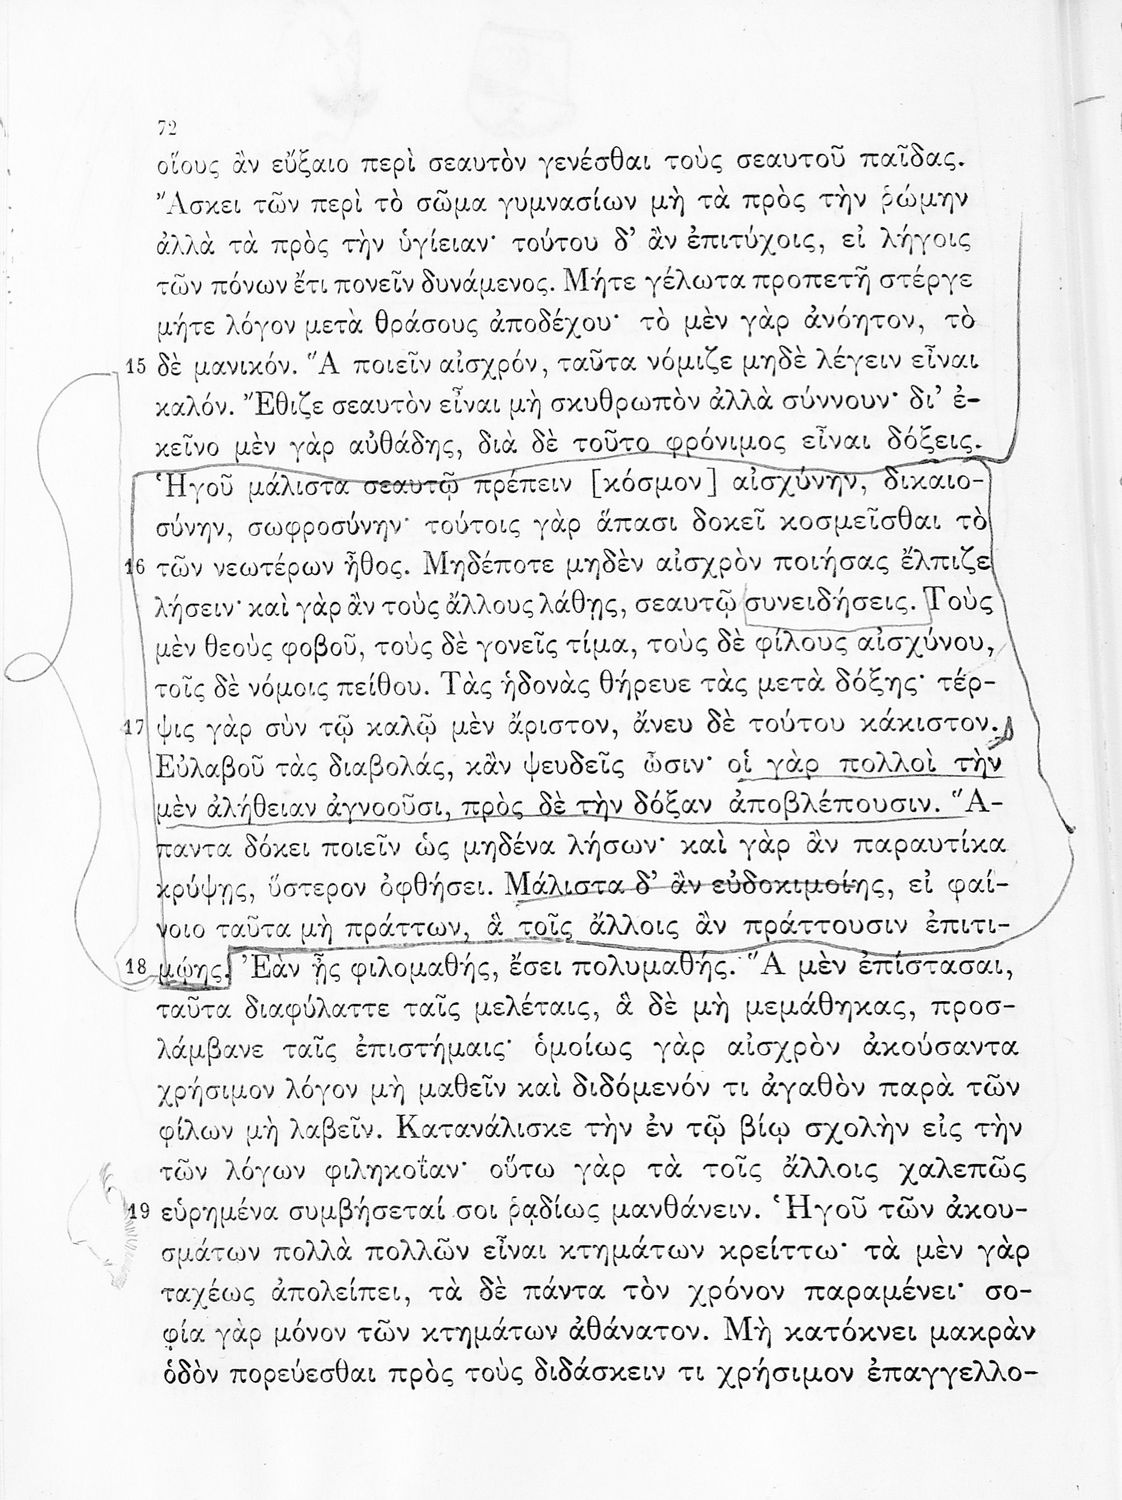 72
οἵους ἂν εὔξαιο περὶ σεαυτὸν γενέσθαι τοὺς σεαυτοῦ παῖδας.
Ἄσκει τῶν περὶ τὸ σῶμα γυμνασίων μὴ τὰ πρὸς τὴν ῥώμην
ἀλλὰ τὰ πρὸς τὴν ὑγίειαν· τούτου δ’ ἂν ἐπιτύχοις, εἰ λήγοις
τῶν πόνων ἔτι πονεῖν δυνάμενος. Μήτε γέλωτα προπετῆ στέργε
μήτε λόγον μετὰ θράσους ἀποδέχου· τὸ μὲν γὰρ ἀνόητον, τὸ
15 δὲ μανικόν. Ἃ ποιεῖν αἰσχρόν, ταῦτα νόμιζε μηδὲ λέγειν εἶναι
καλόν. Ἔθιζε σεαυτὸν εἶναι μὴ σκυθρωπὸν ἀλλὰ σύννουν· δι’ ἐ-
κεῖνο μὲν γὰρ αὐθάδης, διὰ δὲ τοῦτο φρόνιμος εἶναι δόξεις.
Ἡγοῦ μάλιστα σεαυτῷ πρέπειν [κόσμον] αἰσχύνην, δικαιο-
σύνην, σωφροσύνην· τούτοις γὰρ ἅπασι δοκεῖ κοσμεῖσθαι τὸ
16 τῶν νεωτέρων ἦθος. Μηδέποτε μηδὲν αἰσχρὸν ποιήσας ἔλπιζε
λήσειν· καὶ γὰρ ἂν τοὺς ἄλλους λάθῃς, σεαυτῷ συνειδήσεις. Τοὺς
μὲν θεοὺς φοβοῦ, τοὺς δὲ γονεῖς τίμα, τοὺς δὲ φίλους αἰσχύνου,
τοῖς δὲ νόμοις πείθου. Τὰς ἡδονὰς θήρευε τὰς μετὰ δόξης· τέρ-
17 ψις γὰρ σὺν τῷ καλῷ μὲν ἄριστον, ἄνευ δὲ τούτου κάκιστον.
Εὐλαβοῦ τὰς διαβολάς, κἂν ψευδεῖς ὦσιν· οἱ γὰρ πολλοὶ τὴν
μὲν ἀλήθειαν ἀγνοοῦσι, πρὸς δὲ τὴν δόξαν ἀποβλέπουσιν. Ἅ-
παντα δόκει ποιεῖν ὡς μηδένα λήσων· καὶ γὰρ ἂν παραυτίκα
κρύψῃς, ὕστερον ὀφθήσει. Μάλιστα δ’ ἂν εὐδοκιμοίης, εἰ φαί-
νοιο ταῦτα μὴ πράττων, ἃ τοῖς ἄλλοις ἂν πράττουσιν ἐπιτι-
18 μῴης. Ἐὰν ᾖς φιλομαθής, ἔσει πολυμαθής. Ἃ μὲν ἐπίστασαι,
ταῦτα διαφύλαττε ταῖς μελέταις, ἃ δὲ μὴ μεμάθηκας, προσ-
λάμβανε ταῖς ἐπιστήμαις· ὁμοίως γὰρ αἰσχρὸν ἀκούσαντα
χρήσιμον λόγον μὴ μαθεῖν καὶ διδόμενόν τι ἀγαθὸν παρὰ τῶν
φίλων μὴ λαβεῖν. Κατανάλισκε τὴν ἐν τῷ βίῳ σχολὴν εἰς τὴν
τῶν λόγων φιληκοΐαν· οὕτω γὰρ τὰ τοῖς ἄλλοις χαλεπῶς
19 εὑρημένα συμβήσεταί σοι ῥᾳδίως μανθάνειν. Ἡγοῦ τῶν ἀκου-
σμάτων πολλὰ πολλῶν εἶναι κτημάτων κρείττω· τὰ μὲν γὰρ
ταχέως ἀπολείπει, τὰ δὲ πάντα τὸν χρόνον παραμένει· σο-
φία γὰρ μόνον τῶν κτημάτων ἀθάνατον. Μὴ κατόκνει μακρὰν
ὁδὸν πορεύεσθαι πρὸς τοὺς διδάσκειν τι χρήσιμον ἐπαγγελλο-